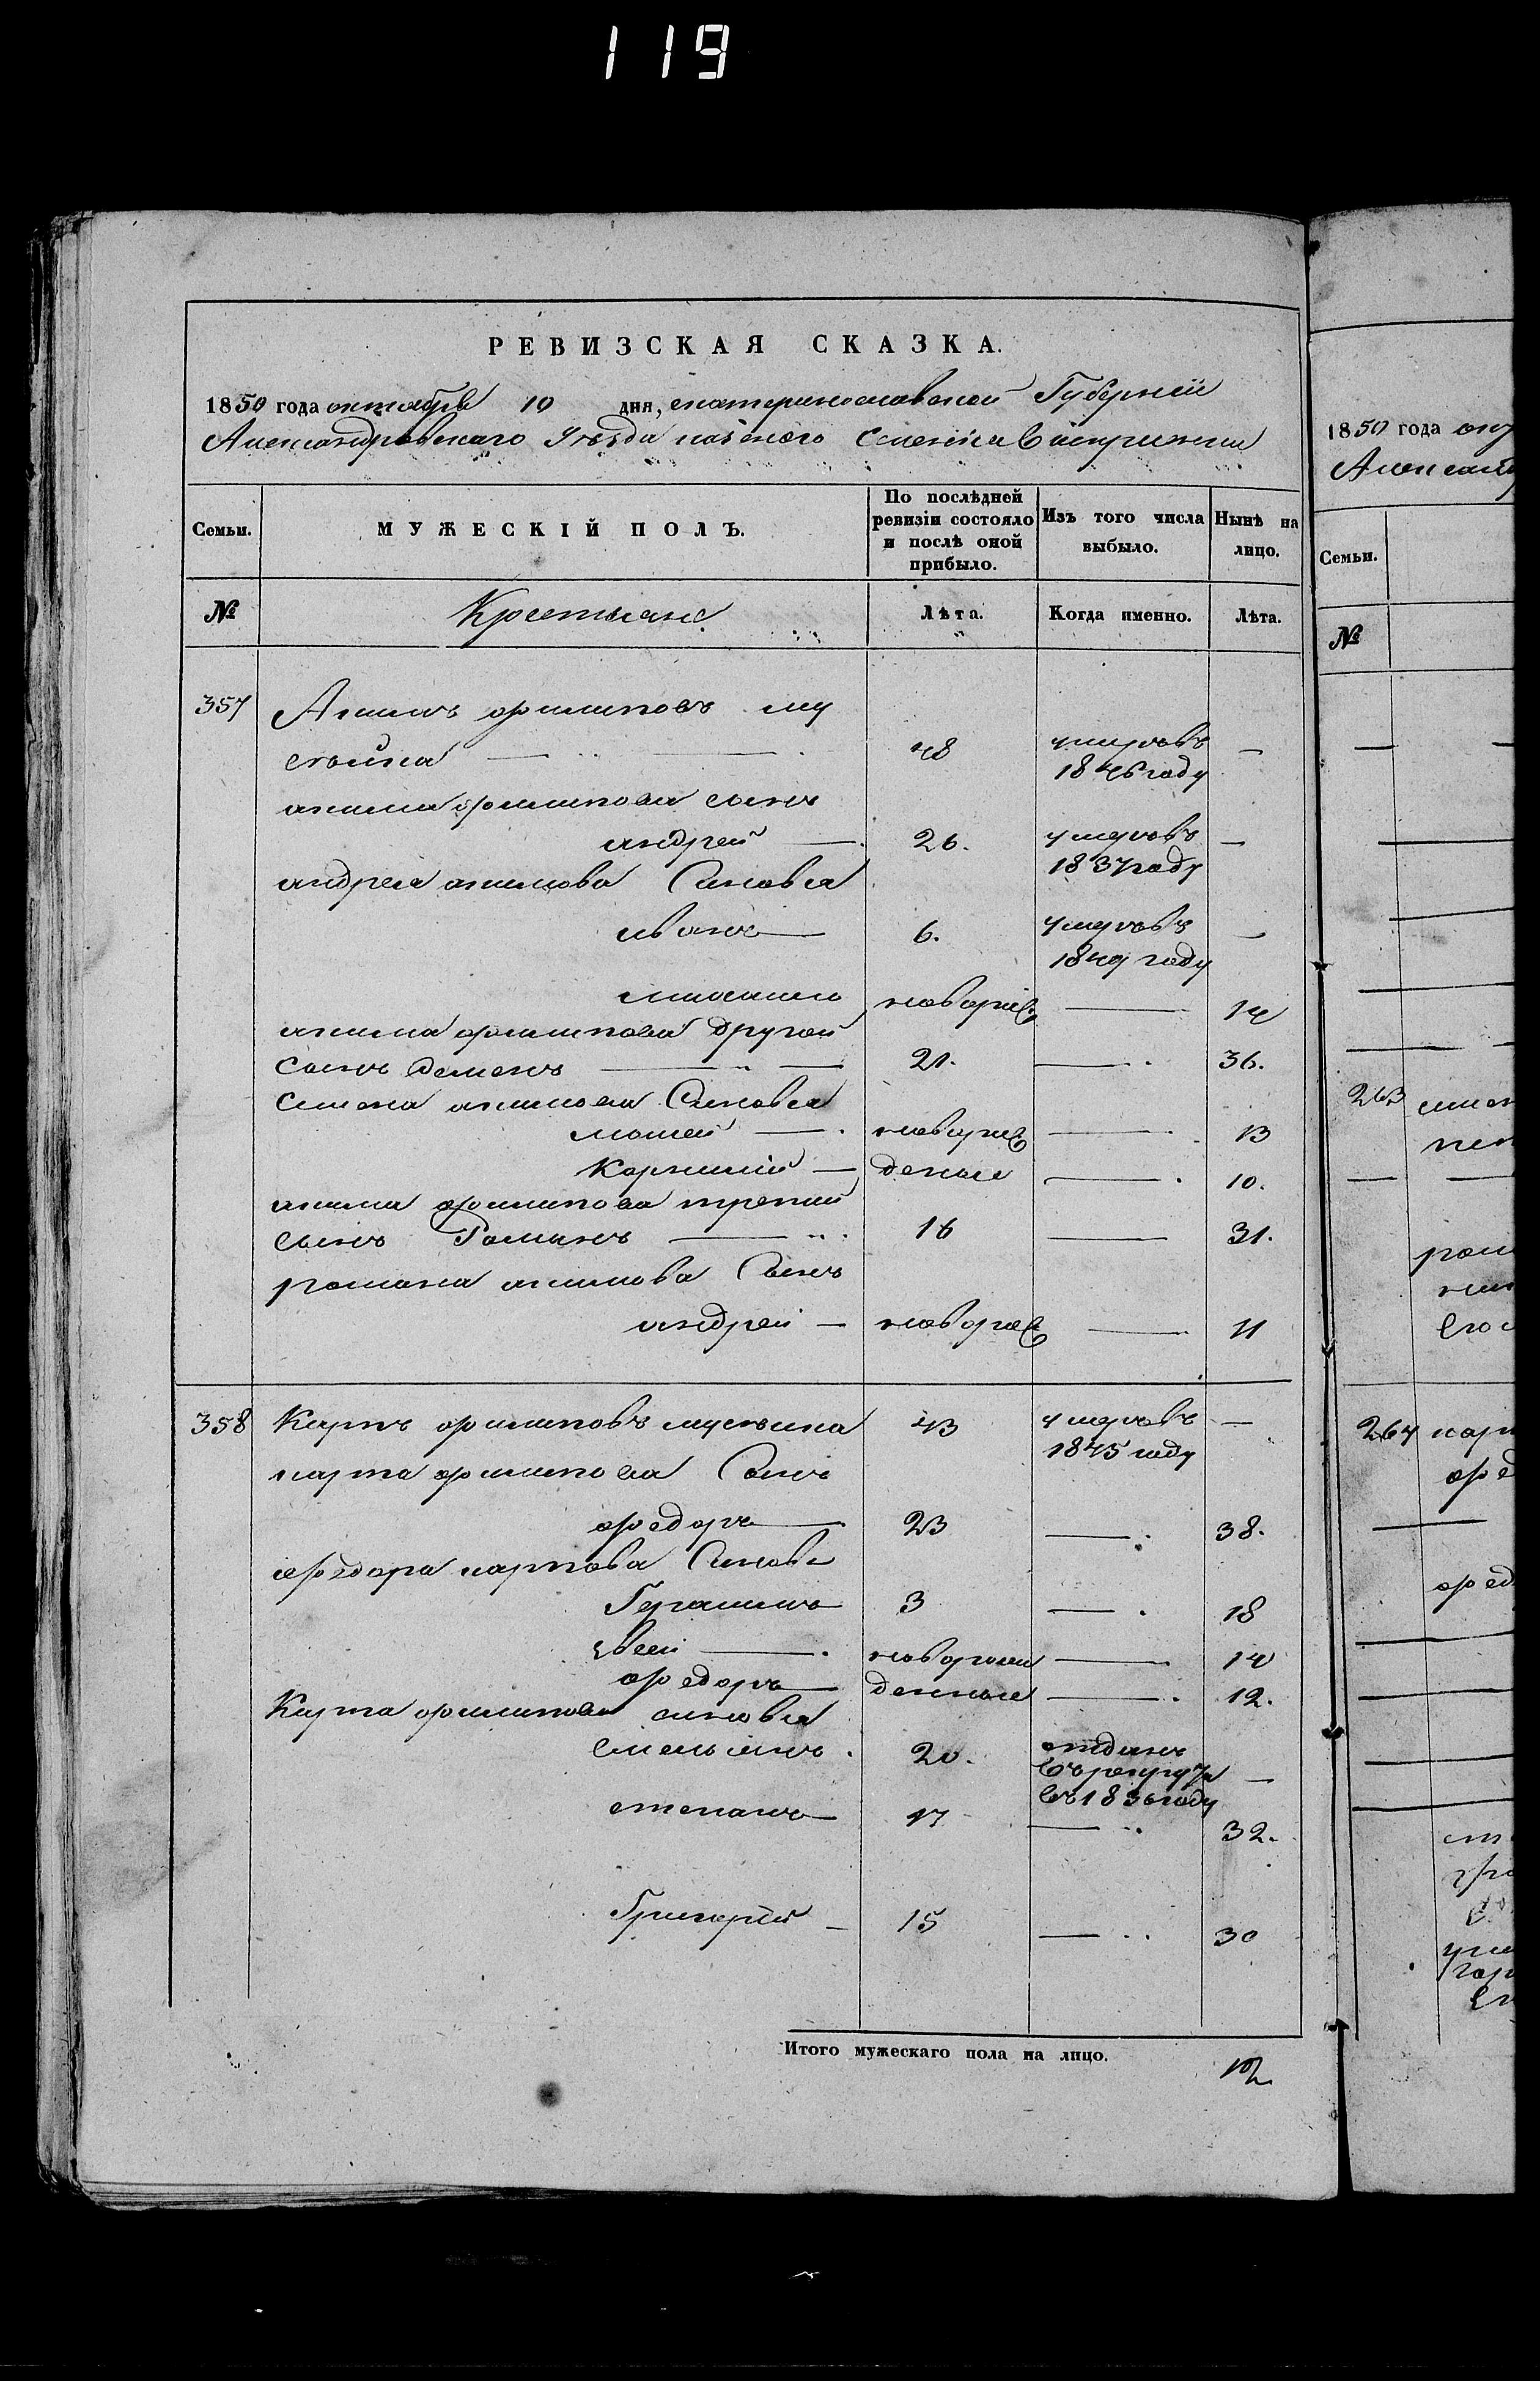 119
РЕВИЗСКАЯ СКАЗКА.
1850 года октября 10 дня, екатеринославской Губерніи
Александровскаго Уезда казеного Селенія
Семьи.
МУЖЕСКІЙ ПОЛЪ.
По послѣдней ревизіи состояло и послѣ оной прибыло.
Изъ того числа выбыло.
Нынѣ на лицо.
№
Крестьяне.
Лѣта.
Когда именно.
Лѣта.
357 Акимъ филиповъ му
сіьина 48 умеръ въ —
1846 году
акима филипова сынъ
андрей — 26. умеръ въ —
1837 году
андрея акимова Синовья
иванъ — 6. умеръ въ —
1849 году
новорож — 14
акима филипова другой
Сынъ Семенъ — 21. — 36.
Семена акимова Синовья
мосей — новорож — 13
Корнилий — деные — 10.
акима филипова третий
сынъ Романъ — 16 — 31.
романа акимова Сынъ
андрей — новорож — 11
358 Карпъ филиповъ мусіьина 43 умеръ въ —
1845 году
карпа филипова Сынъ
федоръ — 23 — 38.
федора карпова Синовья
Герасимъ 3 — 18
— новорож — 14
федоръ — денные — 12.
Карпа филипова синовья
Емельянъ. 20. отданъ
въ рекруты —
въ 1836 году
степанъ — 17 — 32.
Григорій — 15 — 30
Итого мужескаго пола на лицо. 12
1850 года
Семьи.
№
263
264